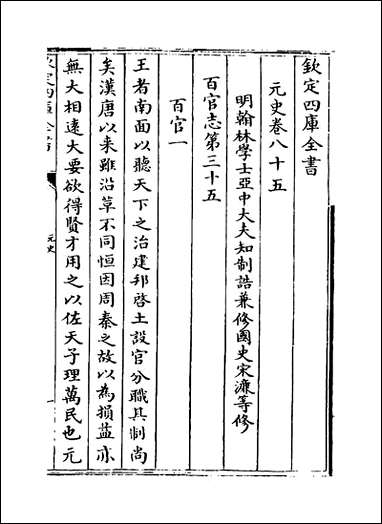 欽定四庫全書
元史卷八十五
明翰林學士亞中大夫知制誥兼修國史宋濂等修
百官志第三十五
百官一
王者南面以聽天下之治建邦啓土設官分職其制尚
矣漢唐以来雖沿革不同恒因周秦之故以為損益亦
無大相遠大要欲得賢才用之以佐天子理萬民也元
元史